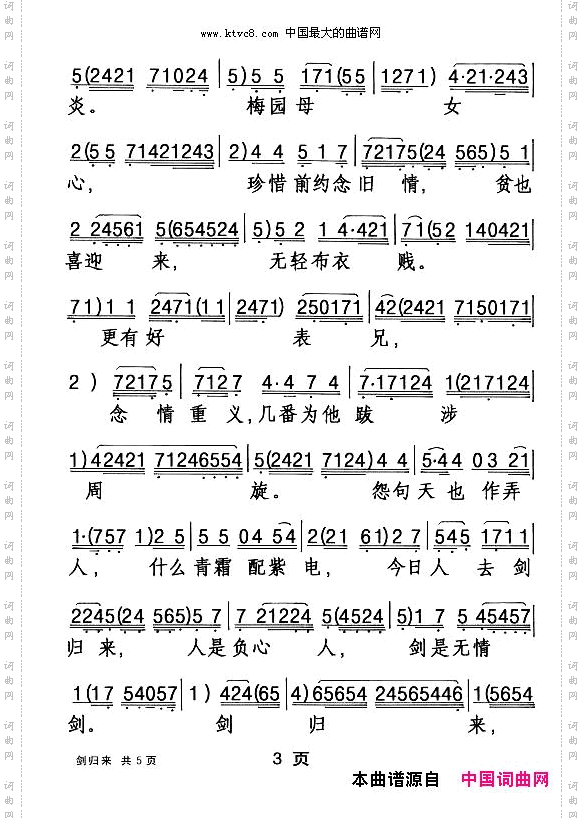 www.ktvc8.com 中国最大的曲谱网
5(2421 71024 | 5)5 5 171(55 | 1271) 4·21·243 |
炎。 梅园母 女
2(5 5 71421243 | 2)4 4 5 1 7 | 72175(24 565)5 1 |
心, 珍惜前约念旧 情, 贫也
2 24561 5(654524 | 5)5 2 1 4·421 | 71(52 140421 |
喜迎 来, 无轻布衣 贱。
71)1 1 2471(1 1 | 2471) 250171 | 42(2421 7150171 |
更有好 表 兄,
2 ) 72175 | 7127 4·4 7 4 | 7·17124 1(217124 |
念 情 重 义,几番为他 跋 涉
1)42421 71246554 | 5(2421 7124)4 4 | 5·44 03 21 |
周 旋。 怨句天也 作弄
1·(757 1)2 5 | 5 5 04 54 | 2(21 61)2 7 | 545 1711 |
人, 什么青霜 配紫 电, 今日人 去 剑
2245(24 565)5 7 | 7 21224 5(4524 | 5)1 7 5 45457 |
归 来, 人是负心 人, 剑是无情
1(17 54057 | 1) 424(65 | 4)65654 24565446 | 1(5654
剑。 剑 归 来,
剑归来 共 5 页
3 页
本曲谱源自 中国词曲网
词曲网